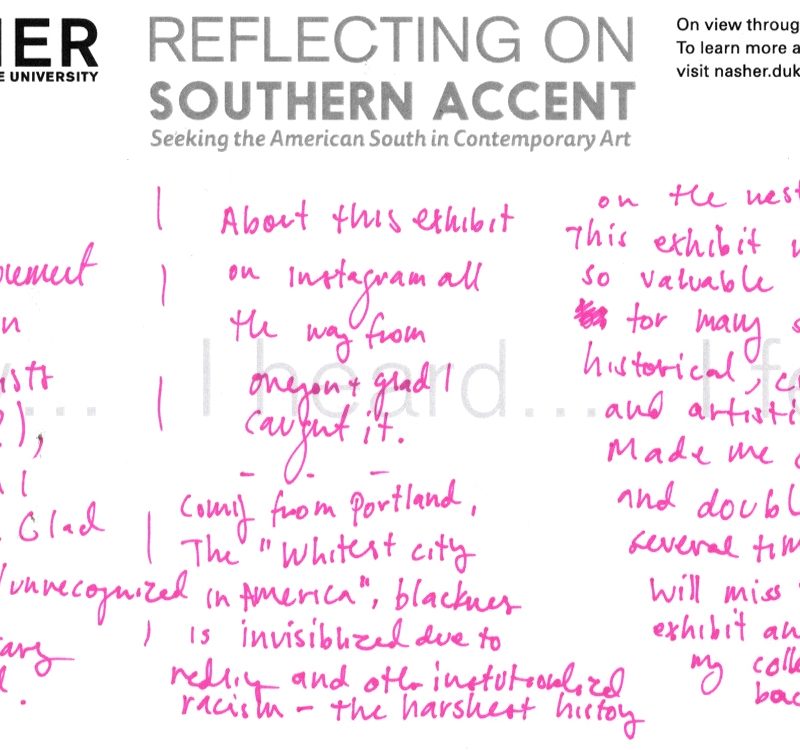 HER
E UNIVERSITY
REFLECTING ON
SOUTHERN ACCENT
Seeking the American South in Contemporary Art
On view throug
To learn more a
visit nasher.duk
n
),
I
Glad
/unrecognized
I heard...
About this exhibit
on Instagram all
the way from
oregon + glad I
caught it.
Comig from Portland,
The "Whitest city
in America", blackness
is invisiblized due to
redlig and other institutionalized
racism – the harshest history
on the west
This exhibit w
so valuable
for many s
historical, c
and artisti
Made me
and doubl
several tim
Will miss
exhibit an
my colle
bac